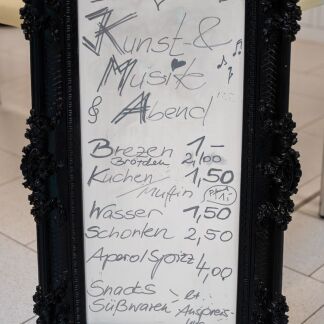 Kunst- &
Musik
& Abend
Brezen 1,-
Brötchen 2,00
Kuchen 1,50
Muffin
Wasser 1,50
Schorlen 2,50
Aperol Sprizz 4,00
Snacks
Süßwaren lt.
Auspreis-